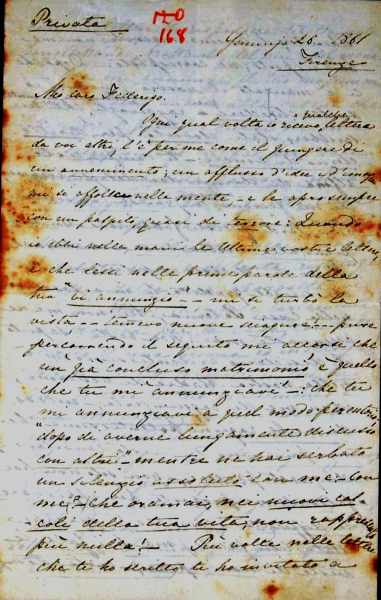 Privata
110
168
Gennajo 26 1861
Firenze
Mio caro Federigo.
Ogni qual volta io ricevo qualche lettera
da voi altri, l'è per me come il giungere di
un avvenimento; un afflusso d'idee e d'imag
mi si affolla nella mente, e le apro sempre
con un palpito, quasi di terrore: Quando
io ebbi nella mani le ultime vostre lettere,
e che lessi nelle prime parole della
tua "ti annunzio" — mi si turbò la
vista — temevo nuove sciagure — pure
percorrendo il seguito mi accorsi che
un già concluso matrimonio è quello
che tu mi annunziavi! — che tu
mi annunziavi a quel modo per
"dopo de averne lungamente discusso
con altri" — mentre ne hai serbato
un silenzio assoluto con me — con
me! — che oramai, nei nuovi cal
coli della tua vita, non rappresento
più nulla! — Più volte nelle lettere
che ti ho scritto ti ho invitato a